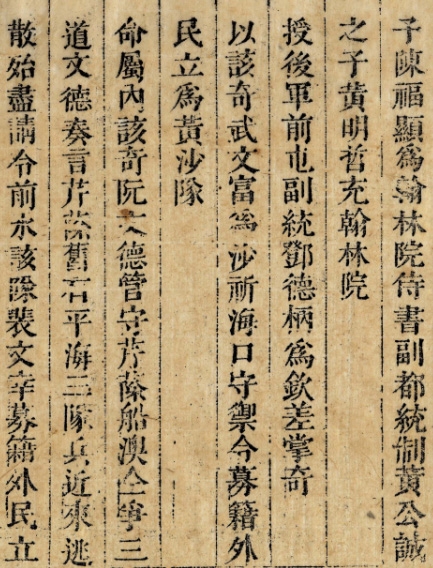 子陳福顯爲翰林院侍書副都統制黃公誠
之子黃明哲充翰林院
授後軍前屯副統鄧德柄爲欽差掌奇
以該奇武文富爲沙祈海口守禦令募籍外
民立爲黃沙隊
命屬內該奇阮文德管守芹蒢船澳仝爭三
道文德奏言芹蒢舊有平海三隊兵近來逃
散殆盡請令前水該隊裴文幸募籍外民立